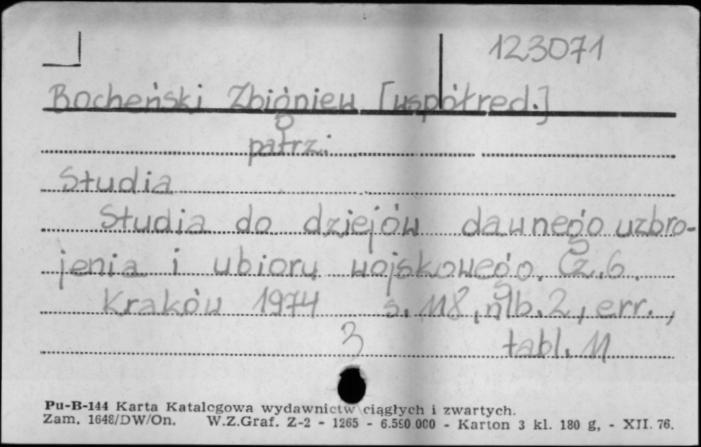 123071
Bocheński Zbigniew [współred.]
patrz:
Studia
Studia do dziejów dawnego uzbro-
jenia i ubioru wojskowego. Cz. 6.
Kraków 1974 s. 118, nlb. 2, err.,
3 tabl. 11
Pu-B-144 Karta Katalogowa wydawnictw ciągłych i zwartych.
Zam. 1648/DW/On. W.Z.Graf. Z-2 - 1265 - 6.590 000 - Karton 3 kl. 180 g, - XII. 76.